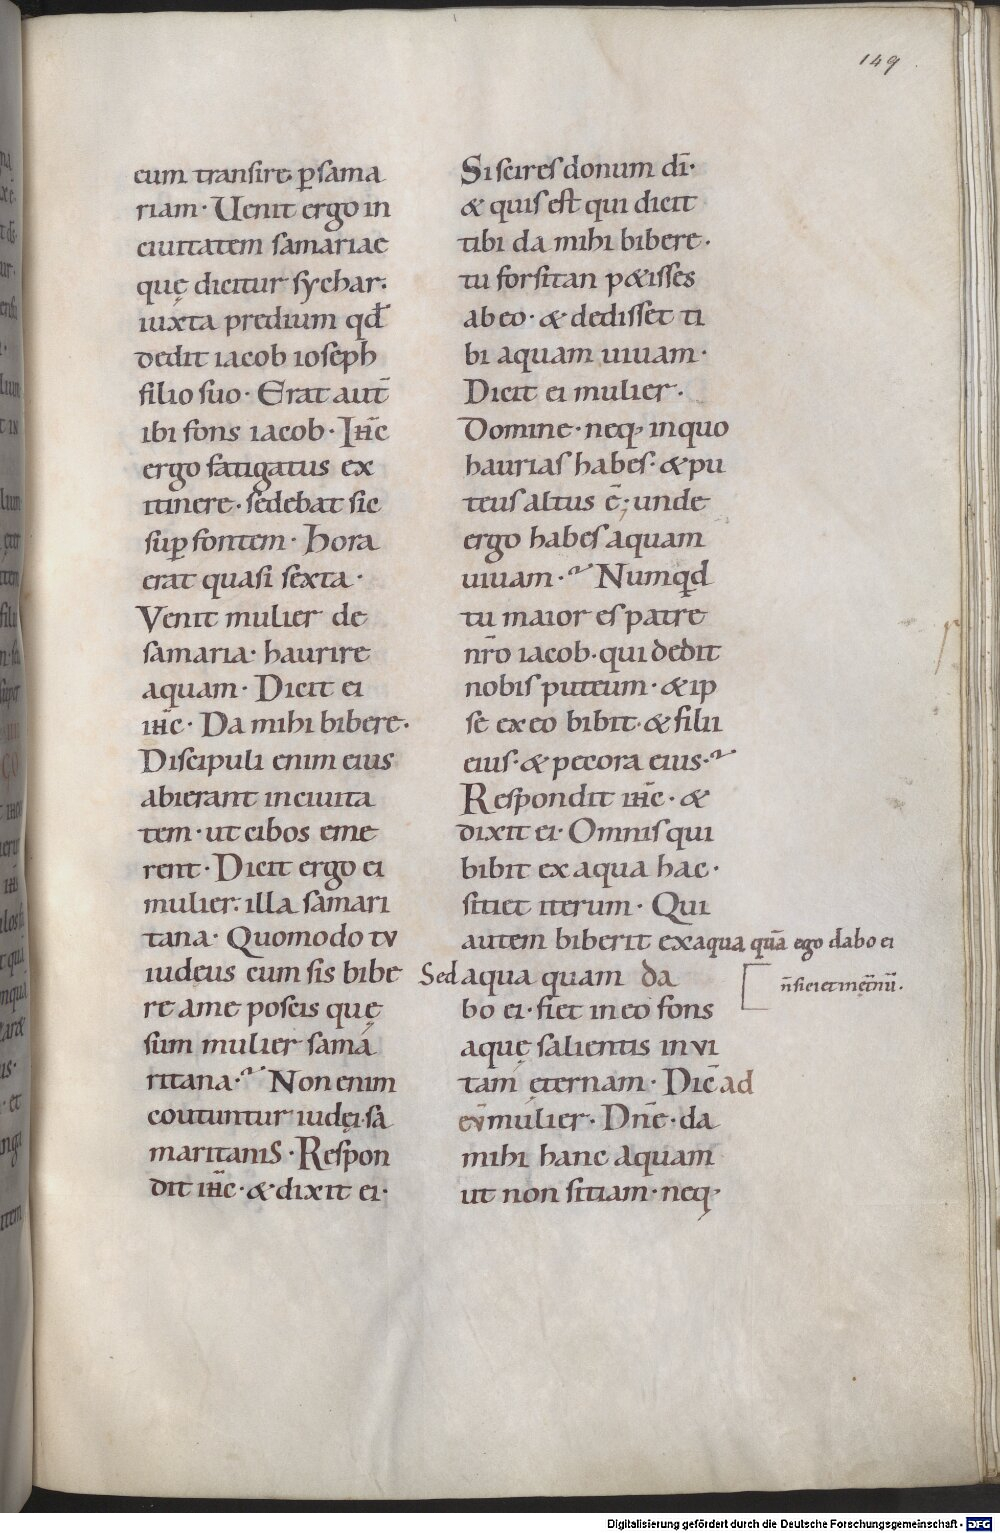 149
eum transire p̱ sama
riam· Uenit ergo in
ciuitatem samariae
quę dicitur sychar·
iuxta predium qđ
dedit iacob ioseph̄
filio suo· Erat aut̄
ibi fons iacob· Ih̄c
ergo fatigatus ex
itinere· sedebat sic
sup̱ fontem· Hora
erat quasi sexta·
Venit mulier de
samaria· haurire
aquam· Dicit ei
ih̄c· Da mihi bibere·
Discipuli enim eius
abierant in ciuita
tem· ut cibos eme
rent· Dicit ergo ei
mulier· illa samari
tana· Quomodo tv
iudeus cum sis bibe
re a me poscis quę
sum mulier sama
ritana·? Non enim
coutuntur iudęi· sa
maritaniS· Respon
dit ih̄c· & dixit ei·
Si scires donum dī·
& quis est qui dicit
tibi da mihi bibere·
tu forsitan p&isses
ab eo· & dedisset ti
bi aquam uiuam·
Dicit ei mulier·
Domine· neq; in quo
haurias habes· & pu
teus altus ē; unde
ergo habes aquam
uiuam·? Numq̱d
tu maior es patre
nr̄o iacob· qui dedit
nobis puteum· & ip
se ex eo bibit· & filii
eius· & pecora eius·?
Respondit ih̄c· &
dixit ei· Omnis qui
bibit ex aqua hac·
sitiet iterum· Qui
autem biberit ex aqua quā ego dabo ei
n̄ siciet inęt̄nū·
Sed aqua quam da
bo ei· fiet in eo fons
aquę salientis in vi
tam ęternam· Dic̄ ad
ev̄ mulier· Dn̄e· da
mihi hanc aquam
ut non sitiam· neq;
Digitalisierung gefördert durch die Deutsche Forschungsgemeinschaft - DFG